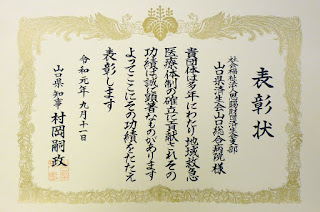 表彰状
社会福祉法人恩賜財団済生会支部
山口県済生会山口総合病院 様
貴団体は多年にわたり地域救急
医療体制の確立に貢献されその
功績は誠に顕著なものがあります
よってここにその功績をたたえ
表彰します
令和元年九月十一日
山口県知事 村岡嗣政